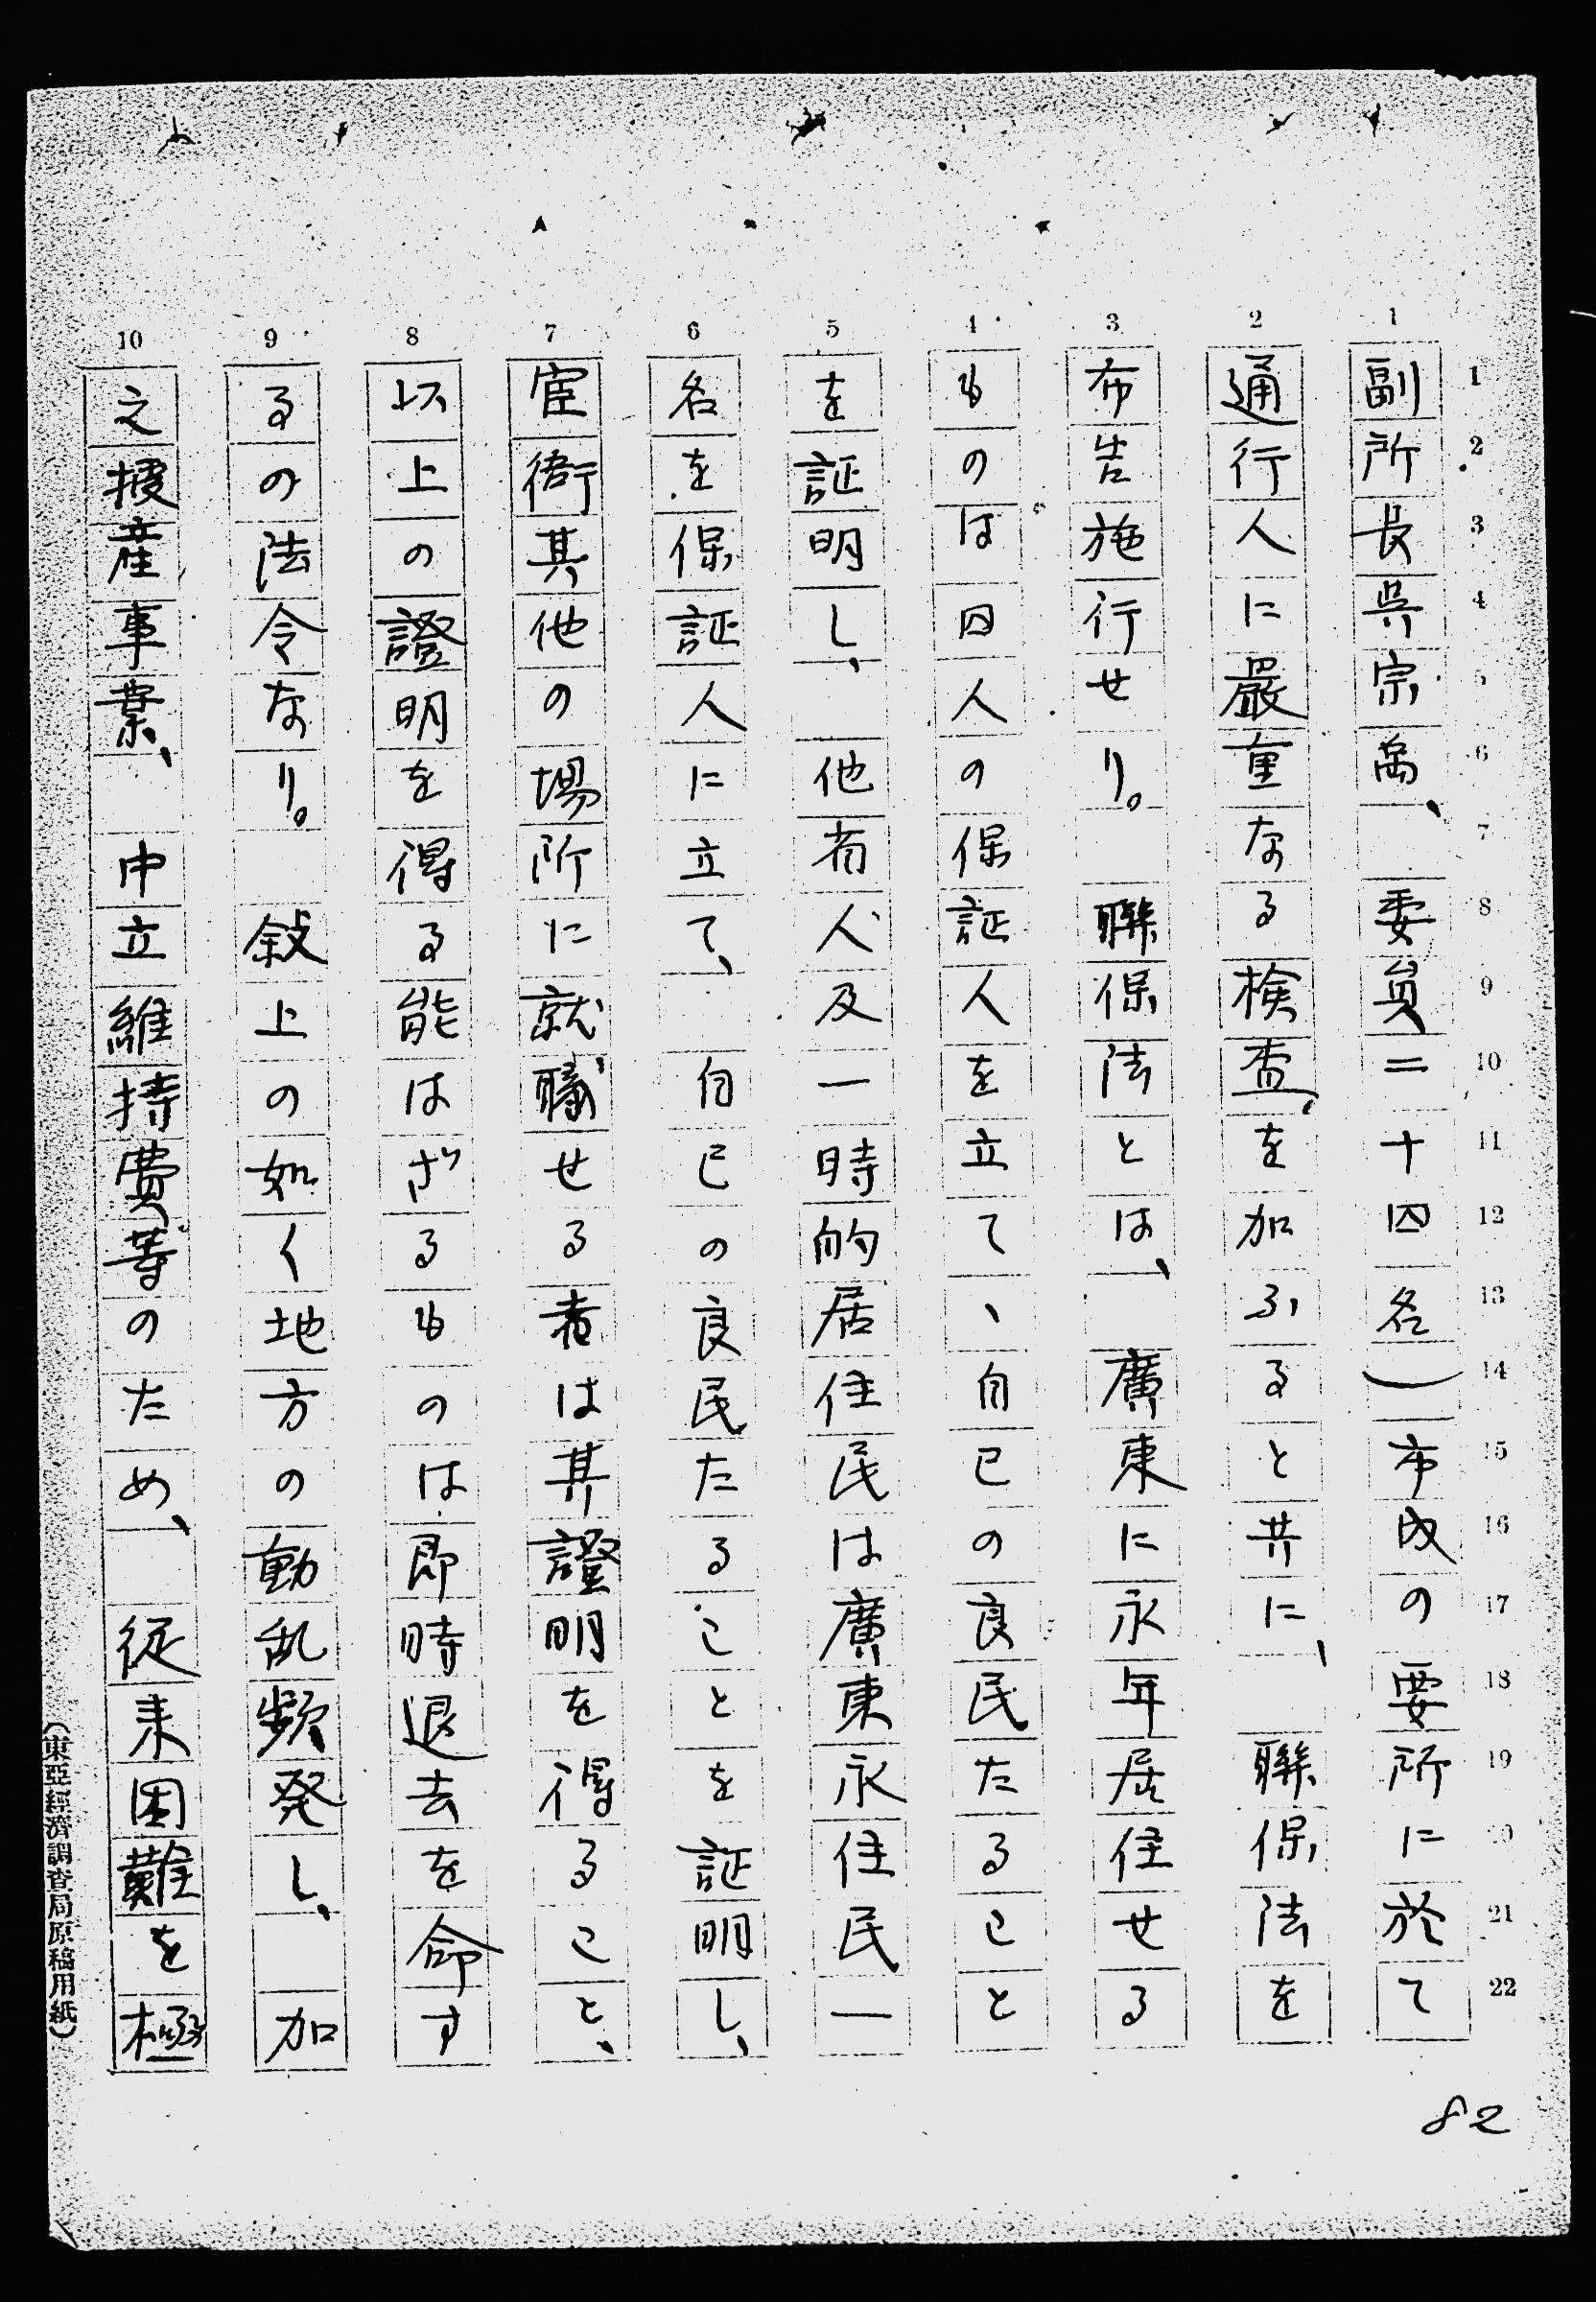 副所長呉宗禹、委員二十四名)市内の要所に於て
通行人に嚴重なる檢査を加ふると共に、聯保法を
布告施行せり。聯保法とは、廣東に永年居住せる
ものは四人の保証人を立て、自己の良民たること
を証明し、他省人及一時的居住民は廣東永住民一
名を保証人に立て、自己の良民たることを証明し、
官衙其他の場所に就職せる者は其證明を得ること、
以上の證明を得る能はざるものは即時退去を命す
るの法令なり。敍上の如く地方の動乱頻発し、加
之授産事業、中立維持費等のため、従来困難を極
(東亞經濟調査局原稿用紙)
82